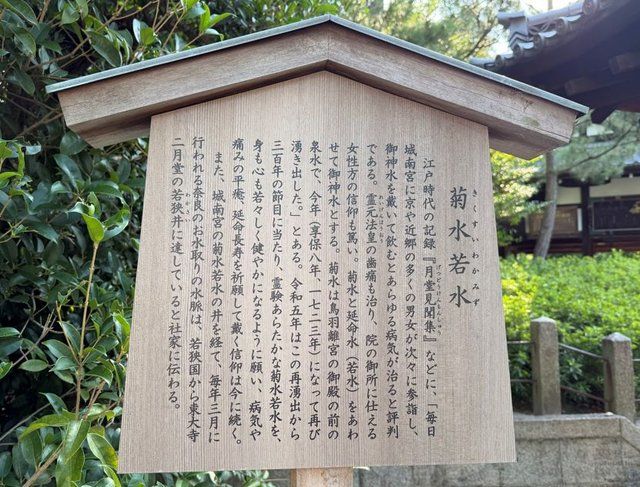 きくすいわかみず
菊水若水
江戸時代の記録『月堂見聞集』などに、「毎日
げつどうけんぶんしゅう
城南宮に京や近郷の多くの男女が次々に参詣し、
御神水を戴いて飲むとあらゆる病気が治ると評判
である。霊元法皇の歯痛も治り、院の御所に仕える
れいげんほうおう
女性方の信仰も篤い。菊水と延命水(若水)をあわ
せて御神水とする。菊水は鳥羽離宮の御殿の前の
泉水で、今年(享保八年、一七二三年)になって再び
湧き出した。」とある。令和五年はこの再湧出から
三百年の節目に当たり、霊験あらたかな菊水若水を、
身も心も若々しく健やかになるように願い、病気や
痛みの平癒、延命長寿を祈願して戴く信仰は今に続く。
また、城南宮の菊水若水の井を経て、毎年三月に
行われる奈良のお水取りの水脈は、若狭国から東大寺
二月堂の若狭井に達していると社家に伝わる。
わかさい